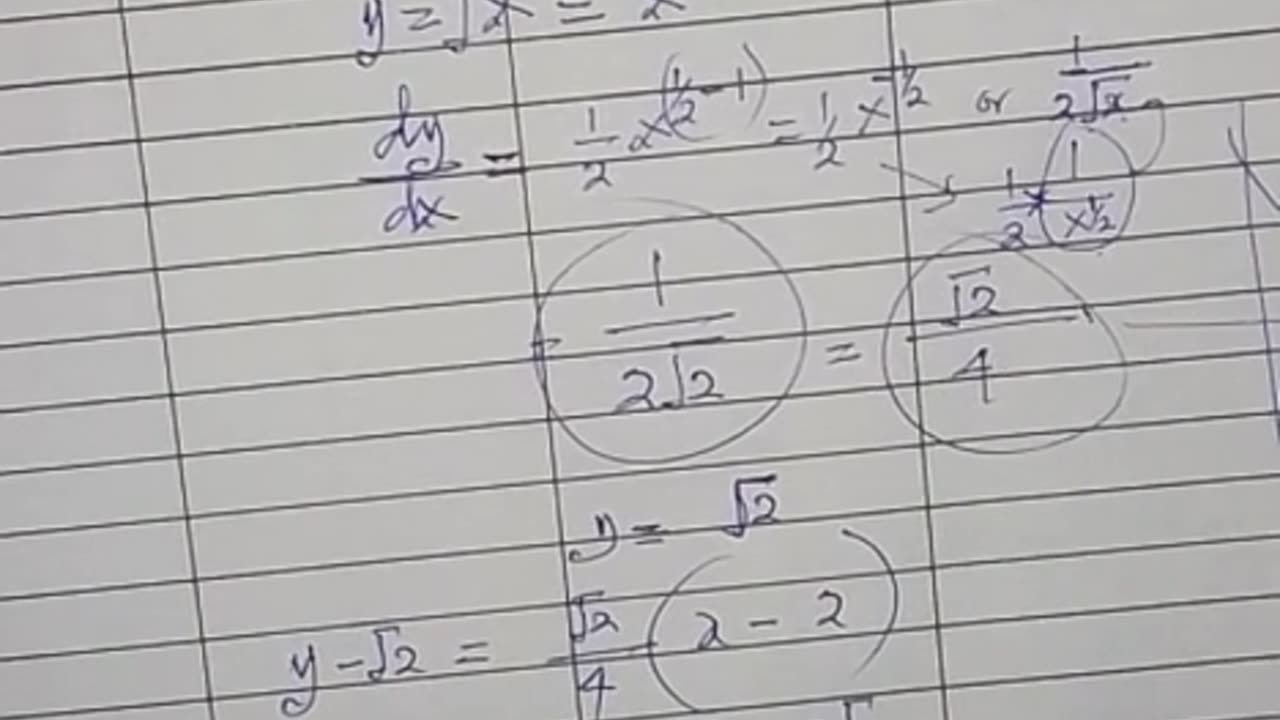 y = √x = x
dy/dx = 1/2 x^(1/2 - 1) = 1/2 x^-1/2 or 1/(2√x)
1/2 × 1/x^1/2
= 1/(2√2) = √2/4
y = √2
y - √2 = √2/4 (x - 2)